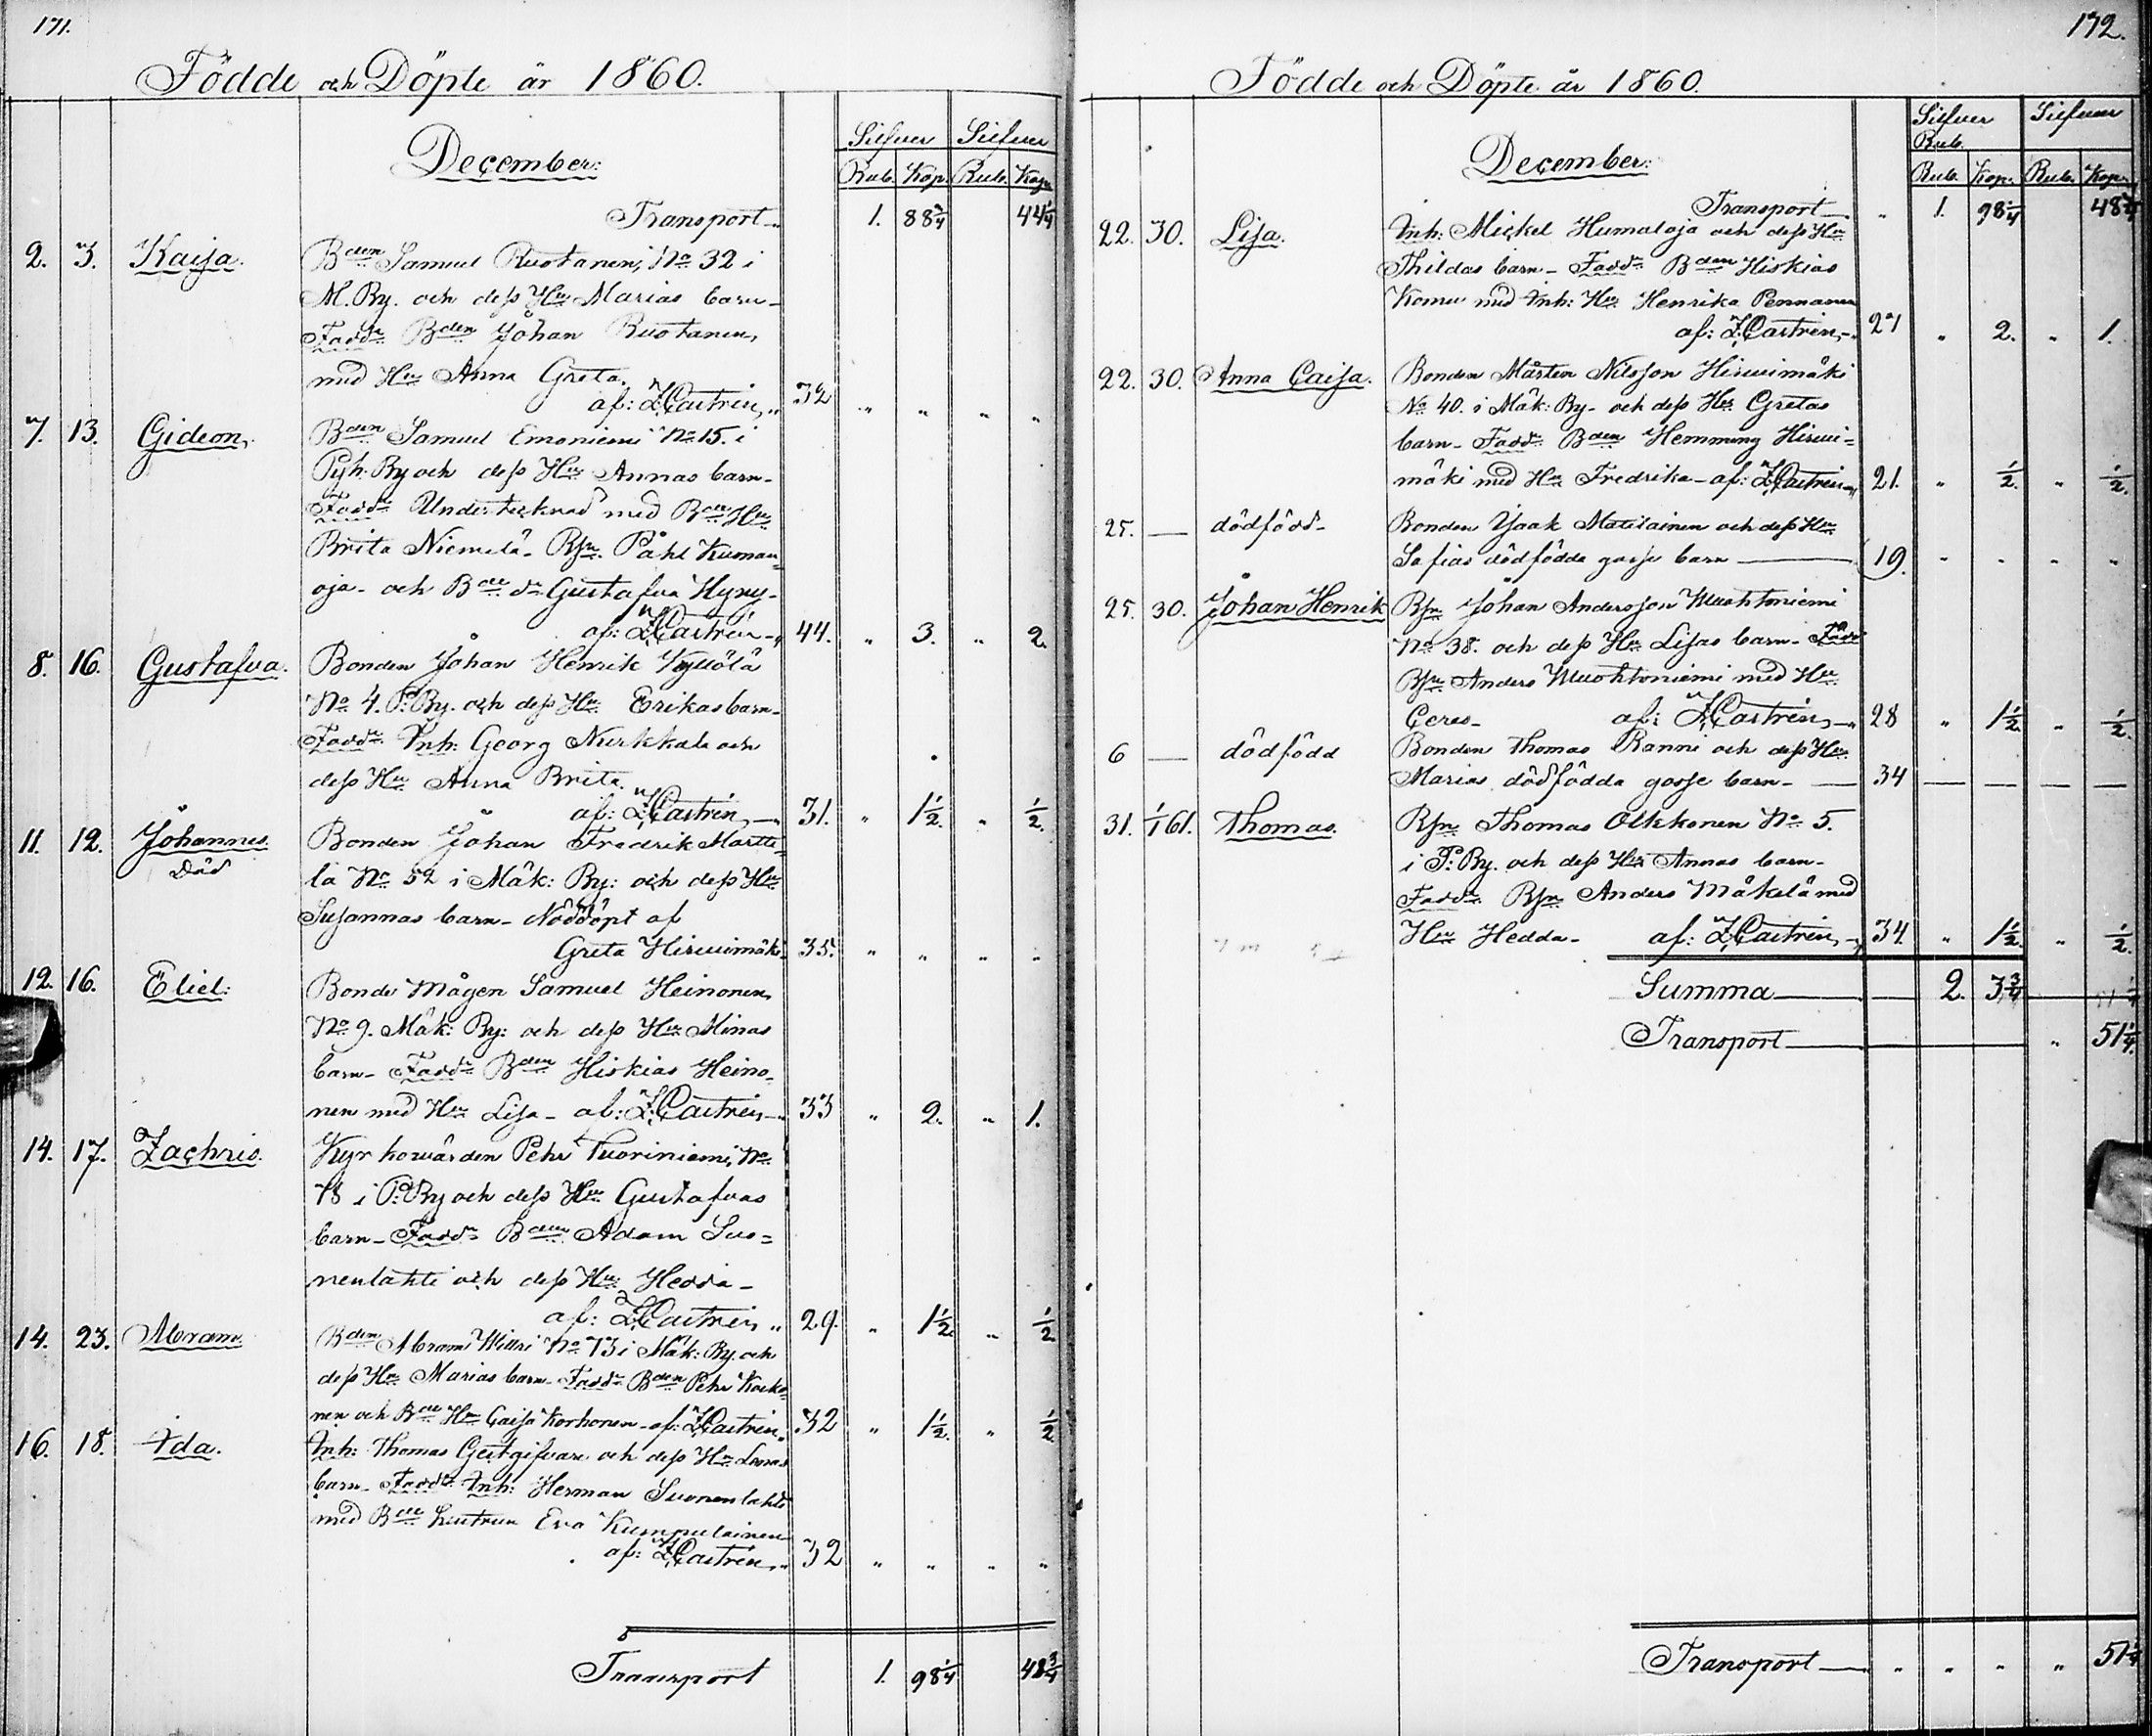 171.
Födde och Döpte år 1860.
December:
Silfver Silfver
Rub. Kop. Rub. Kop.
Transport 1. 88 3/4 44 1/4
2. 3. Kaisa. Bden Samuel Ruotanen, No 32 i
M. By. och dess Hu Marias barn-
Fadd: Bden Johan Ruotanen,
med Hu Anna Greta.
af: Z. Castrén, 32 " " " "
7. 13. Gideon, Bden Samuel Emoniemi No 15. i
Pyh. By och dess Hu Annas barn-
Fadd: Undertecknad med Bden Hu
Brita Niemelä- Bsn. Påhl Kuman-
oja- och Bde dr Gustafva Hyry-
af: Z. Castrén- 44. " 3. " 2.
8. 16. Gustafva. Bonden Johan Henrik Kyllölä
No 4. P. By. och dess Hu Erikas barn-
Fadd: Inh: Georg Nurkkala och
dess Hu Anna Brita.
af: Z. Castrén, 31. " 1 1/2. " 1/2.
11. 12. Johannes. Bonden Johan Fredrik Martte-
Död la No 52 i Mäk: By: och dess Hu
Susannas barn- Nöddöpt af
Greta Hirwimäki 35. " " " "
12. 16. Eliel: Bonde Mågen Samuel Heinonen,
No 9. Mäk: By: och dess Hu Minas
barn- Fadd: Bden Hiskias Heino-
nen med Hu Lisa- af: Z. Castrén- 33 " 2. " 1.
14. 17. Zachris. Kyrkowärden Pehr Tuoriniemi, No
78 i P. By och dess Hu Gustafvas
barn- Fadd: Bden Adam Suo=
nenlahti och dess Hu Hedda-
af: Z. Castrén, 29. " 1 1/2. " 1/2
14. 23. Abram. Bden Abram Willri No 73 i Mäk: By. och
dess Hu Marias barn- Fadd: Bden Pehr Korho-
nen och Bde Hu Caisa Korhonen- af: Z. Castrén. 32 " 1 1/2. " 1/2
16. 18. Ida. Inh: Thomas Gestgifvare och dess Hu Lovisas
barn- Fadd: Inh: Herman Suonenlahti
med Bde Eva Kumpulainen
af: Z. Castrén, 32 " " " "
Transport 1. 98 1/4 48 3/4
172.
Födde och Döpte år 1860.
December:
Silfver Silfver
Rub.
Rub. Kop. Rub. Kop.
Transport " 1. 98 1/4 48 3/4
22. 30. Lisa. Inh: Mickel Humaloja och dess Hu
Thildas barn- Fadd: Bden Hiskias
Komu med Inh: Hu Henrika Pennanen
af: Z. Castrén, 27 " 2. " 1.
22. 30. Anna Caisa. Bonden Mårten Nilsson Hirwimäki
No 40. i Mäk: By- och dess Hu Gretas
barn- Fadd: Bden Hemming Hirwi=
mäki med Hu Fredrika- af: Z. Castrén 21. " 1/2. " 1/2.
25. — dödfödd- Bonden Isaak Matilainen och dess Hu
Sofias dödfödda gosse barn — 19. " " " "
25. 30. Johan Henrik Bsn Johan Andersson Muohtoniemi
No 38. och dess Hu Lisas barn- Fadd:
Bsn Anders Muohtoniemi med Hu
Ceres- af: Z. Castrén, 28 " 1 1/2. " 1/2.
6 — dödfödd Bonden Thomas Ranni och dess Hu
Marias dödfödda gosse barn- — 34 — — — —
31. 1/1 61. Thomas. Bsn Thomas Olkkonen No 5.
i P: By. och dess Hu Annas barn-
Fadd: Bsn Anders Mäkelä med
Hu Hedda- af: Z. Castrén, 34 " 1 1/2. " 1/2.
Summa — 2. 3 3/4
Transport — " 51 1/4.
Transport — " " " " 51 1/4